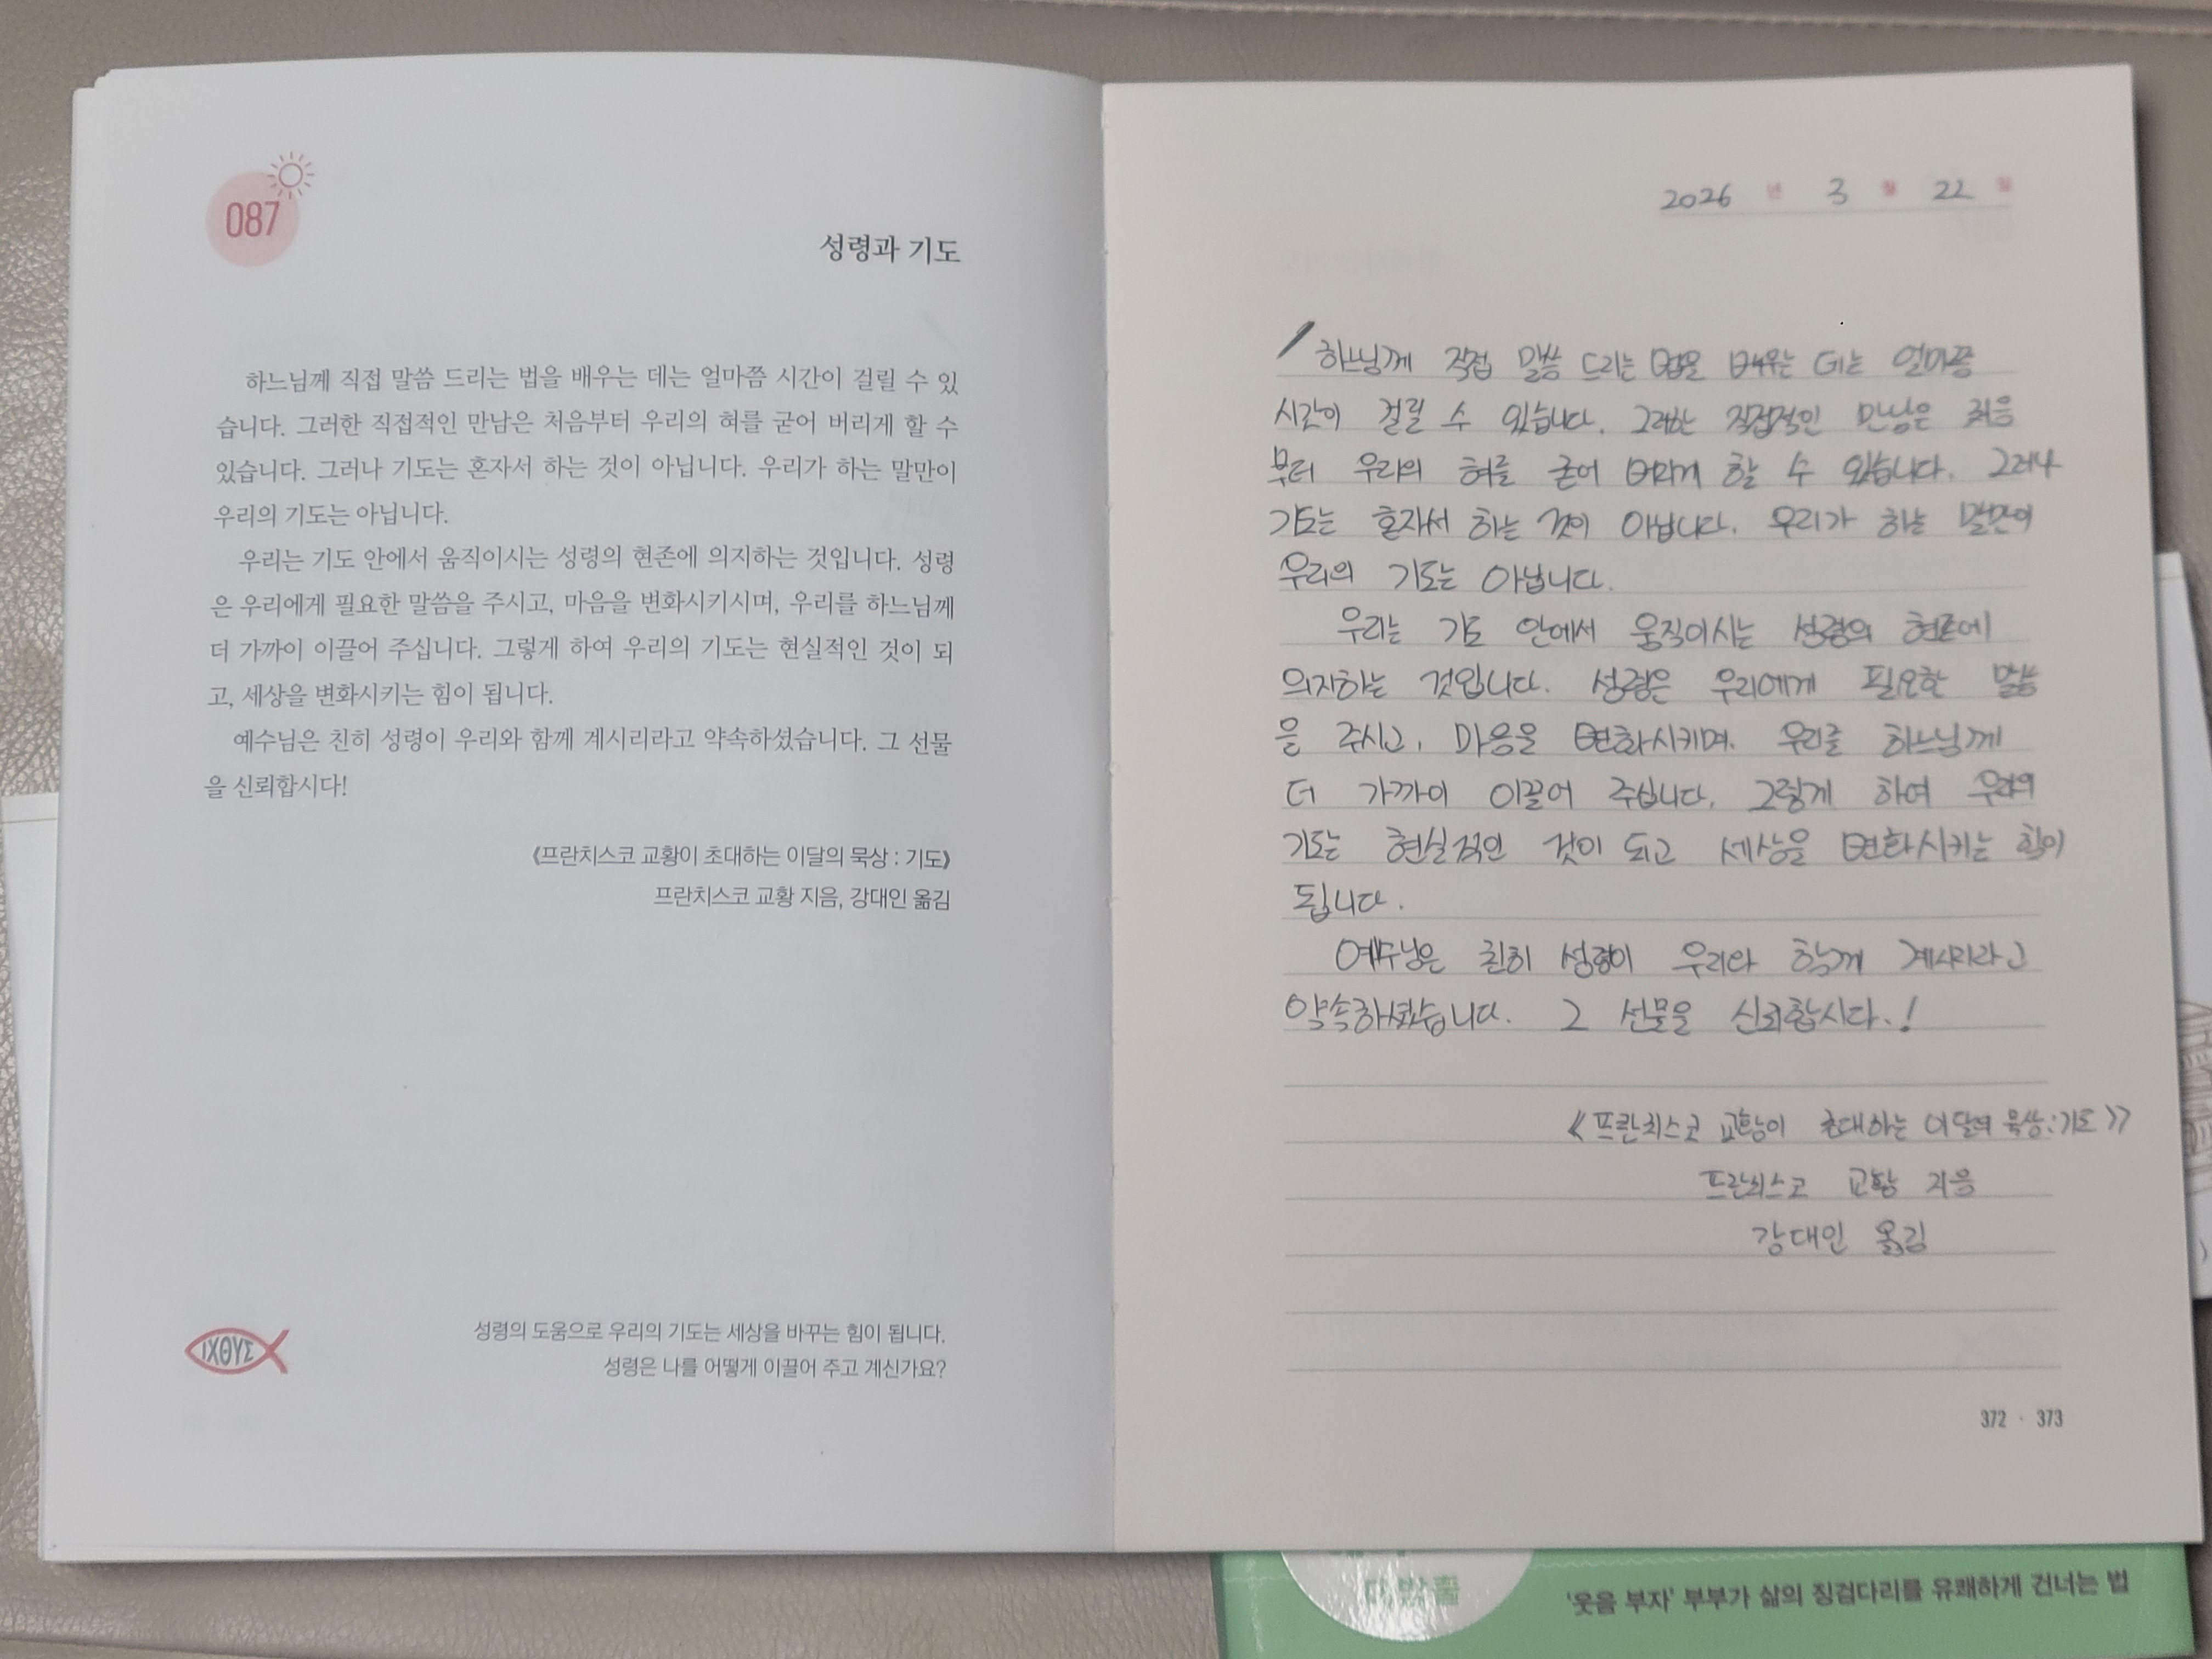 087
성령과 기도
하느님께 직접 말씀 드리는 법을 배우는 데는 얼마쯤 시간이 걸릴 수 있
습니다. 그러한 직접적인 만남은 처음부터 우리의 혀를 굳어 버리게 할 수
있습니다. 그러나 기도는 혼자서 하는 것이 아닙니다. 우리가 하는 말만이
우리의 기도는 아닙니다.
우리는 기도 안에서 움직이시는 성령의 현존에 의지하는 것입니다. 성령
은 우리에게 필요한 말씀을 주시고, 마음을 변화시키시며, 우리를 하느님께
더 가까이 이끌어 주십니다. 그렇게 하여 우리의 기도는 현실적인 것이 되
고, 세상을 변화시키는 힘이 됩니다.
예수님은 친히 성령이 우리와 함께 계시리라고 약속하셨습니다. 그 선물
을 신뢰합시다!
《프란치스코 교황이 초대하는 이달의 묵상 : 기도》
프란치스코 교황 지음, 강대인 옮김
ΙΧΘΥΣ
성령의 도움으로 우리의 기도는 세상을 바꾸는 힘이 됩니다.
성령은 나를 어떻게 이끌어 주고 계신가요?
2026 년 3 월 22 일
하느님께 직접 말씀 드리는 법을 배우는 데는 얼마쯤
시간이 걸릴 수 있습니다. 그러한 직접적인 만남은 처음
부터 우리의 혀를 굳어 버리게 할 수 있습니다. 그러나
기도는 혼자서 하는 것이 아닙니다. 우리가 하는 말만이
우리의 기도는 아닙니다.
우리는 기도 안에서 움직이시는 성령의 현존에
의지하는 것입니다. 성령은 우리에게 필요한 말씀
을 주시고, 마음을 변화시키며, 우리를 하느님께
더 가까이 이끌어 주십니다. 그렇게 하여 우리의
기도는 현실적인 것이 되고 세상을 변화시키는 힘이
됩니다.
예수님은 친히 성령이 우리와 함께 계시리라고
약속하셨습니다. 그 선물을 신뢰합시다.!
《프란치스코 교황이 초대하는 이달의 묵상:기도》
프란치스코 교황 지음
강대인 옮김
372 · 373
'웃음 부자' 부부가 삶의 징검다리를 유쾌하게 건너는 법